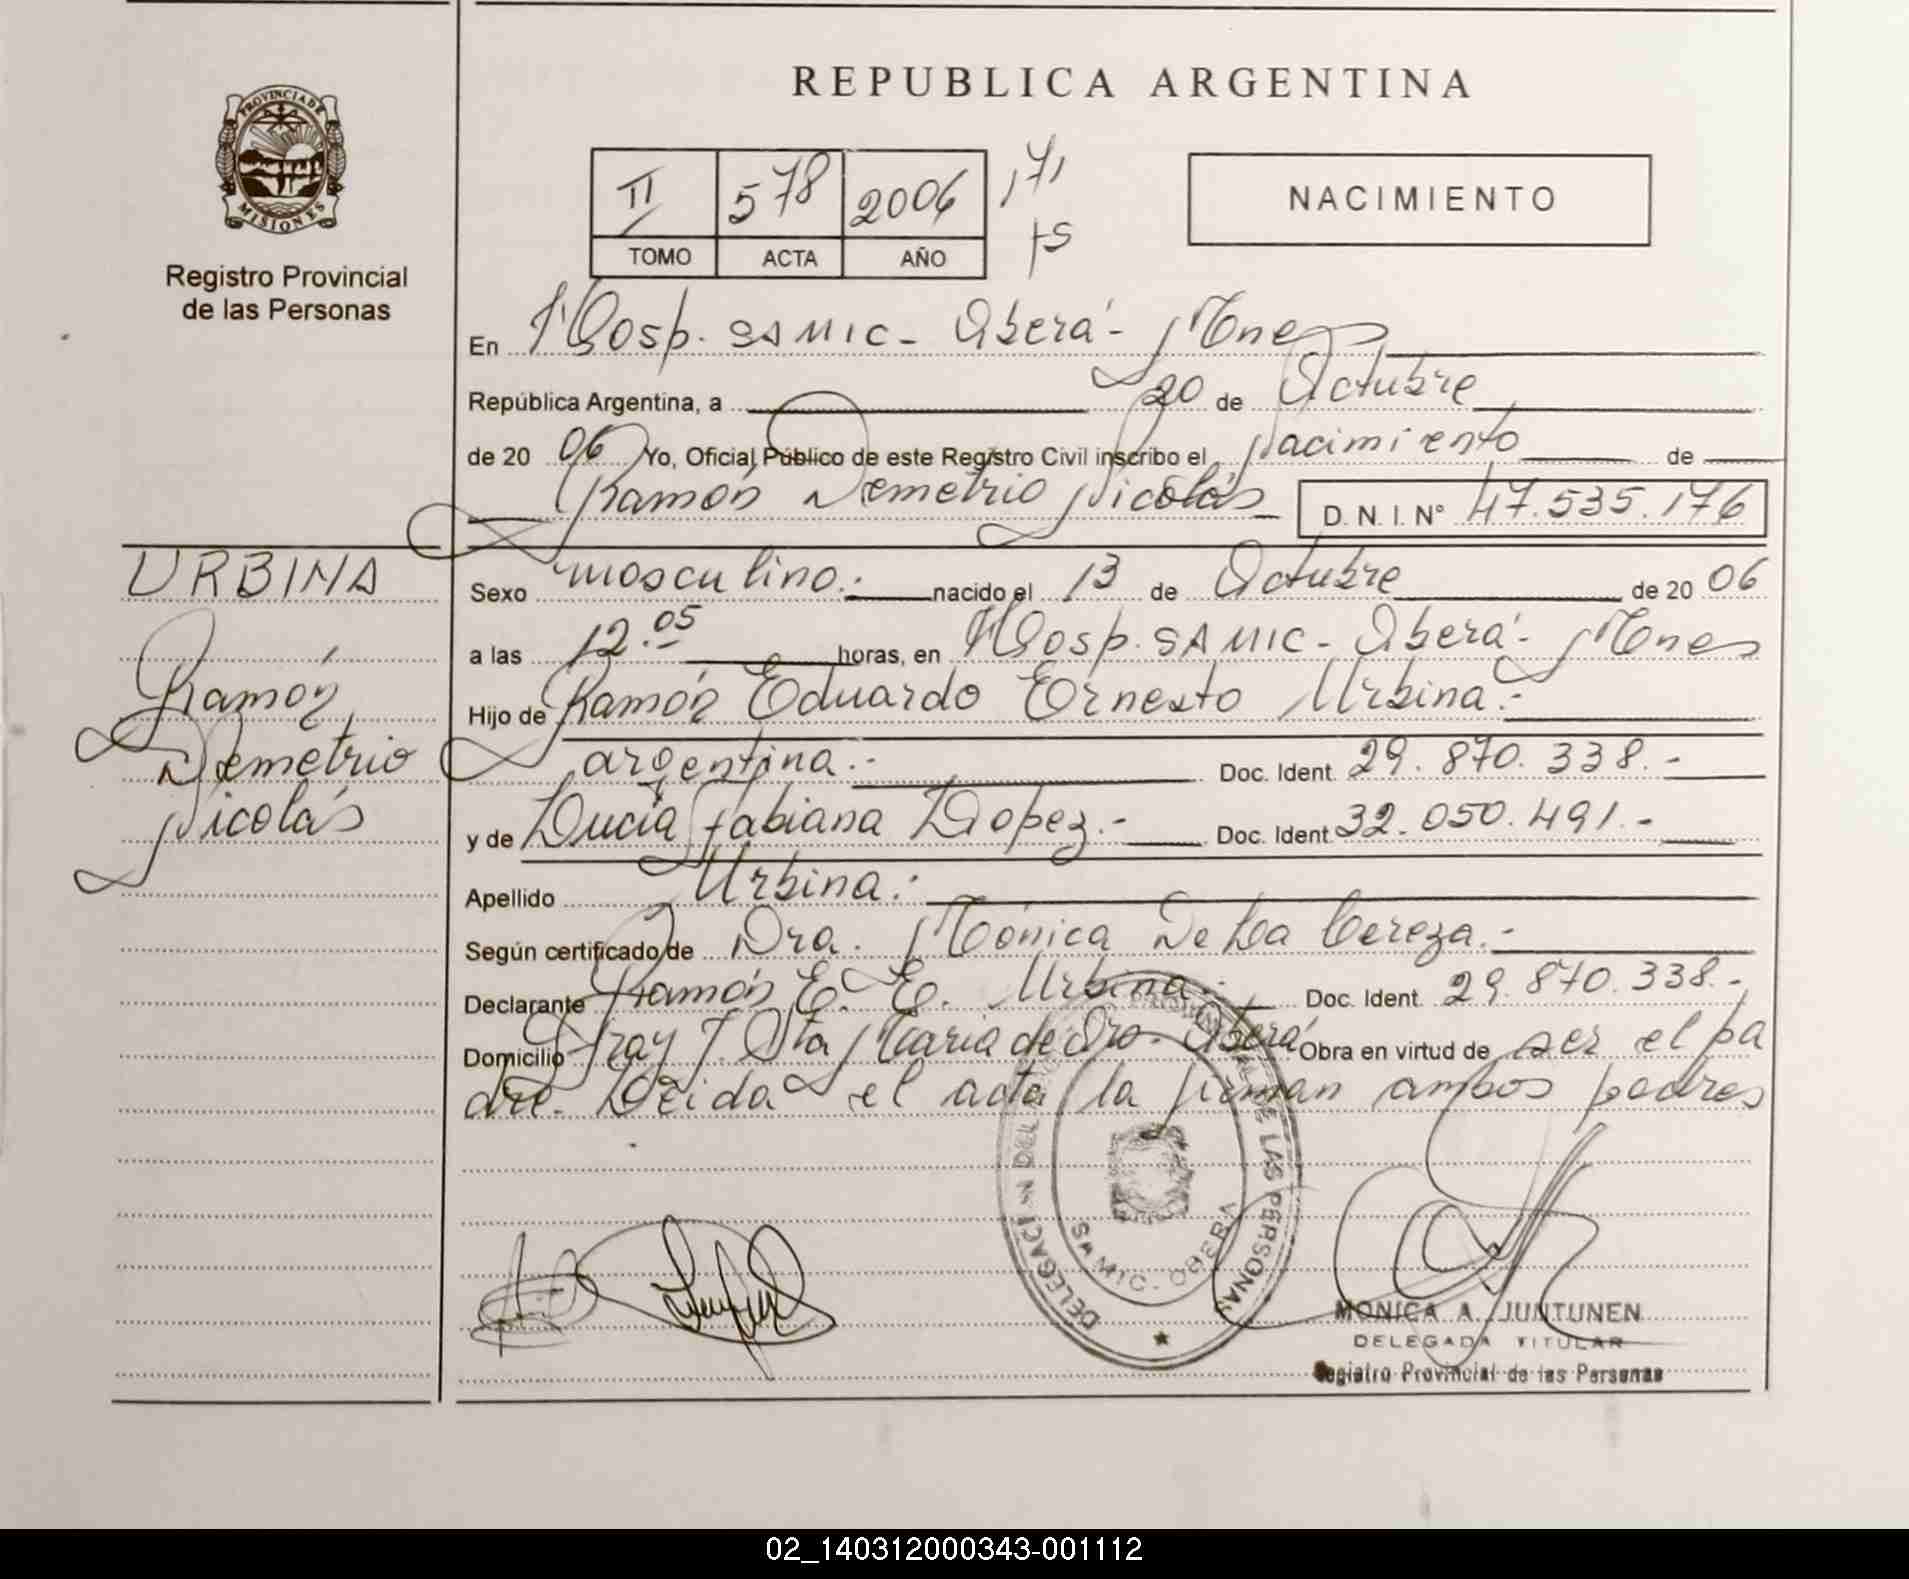 REPUBLICA ARGENTINA
PROVINCIA DE
MISIONES
Registro Provincial
de las Personas
II 578 2006
TOMO ACTA AÑO
NACIMIENTO
En Hosp. SAMIC - Oberá - Mnes
República Argentina, a 20 de Octubre
de 20 06 Yo, Oficial Público de este Registro Civil inscribo el Nacimiento de
Ramón Demetrio Nicolás D. N. I. Nº 47.535.176
URBINA
Ramón
Demetrio
Nicolás
Sexo masculino.- nacido el 13 de Octubre de 20 06
a las 12.05 horas, en Hosp. SAMIC - Oberá - Mnes
Hijo de Ramón Eduardo Ernesto Urbina.-
argentina.- Doc. Ident. 29.870.338.-
y de Lucía Fabiana Lopez.- Doc. Ident. 32.050.491.-
Apellido Urbina.-
Según certificado de Dra. Mónica De La Cereza.-
Declarante Ramón E. E. Urbina.- Doc. Ident. 29.870.338.-
Domicilio Fray J. Sta María de Oro - Oberá Obra en virtud de ser el pa
dre. Leída el acta la firman ambos padres
DELEGACION DEL REGISTRO PROVINCIAL DE LAS PERSONAS
SAMIC - OBERA
MONICA A. JUNTUNEN
DELEGADA TITULAR
Registro Provincial de las Personas
02_140312000343-001112